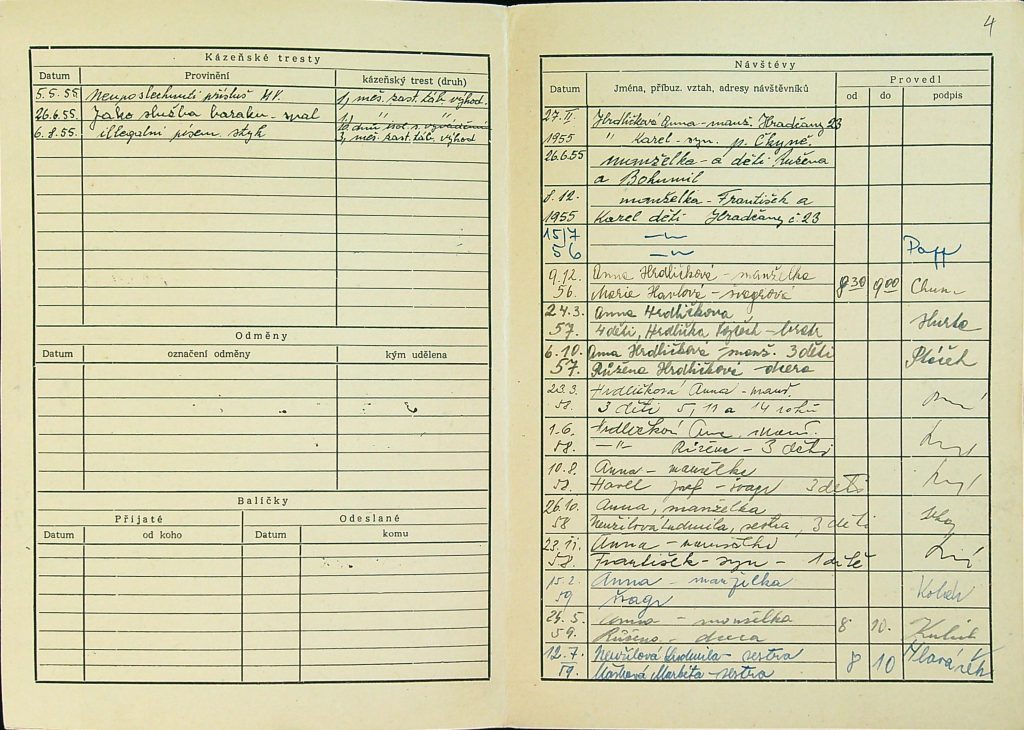 4
Kázeňské tresty
Datum Provinění kázeňský trest (druh)
5.5.55. Neuposlechnutí přísluš. MV. 1, měs. zast. táb. výhod.
26.6.55. Jako služba baráku - spal
6.8.55. illegalní písem. styk 3, měs. zast. táb. výhod
Odměny
Datum označení odměny kým udělena
Balíčky
Přijaté Odeslané
Datum od koho Datum komu
Návštěvy
Datum Jména, příbuz. vztah, adresy návštěvníků Provedl
od do podpis
27. II. Hrdličková Anna - manž. Hradčany 23
1955 " Karel - syn. p. Čkyně.
26.6.55 manželka - a děti Růžena
a Bohumil
8.12. manželka - František a
1955 Karel děti Hradčany č 23
15/7 -"-
56 -"- Papp
9.12. Anna Hrdličková - manželka 8 30 9 00
56. Marie Havlová - švagrová
24.3. Anna Hrdličkova
57. 4 děti, Hrdlička Vojtěch - bratr
6.10. Anna Hrdličková manž. 3 děti
57. Růžena Hrdličková - dcera
23.3. Hrdličková Anna - manž.
58. 3 děti 5, 11 a 14 roků
1.6. Hrdličková manž.
58. -"- Růžena - 3 děti
10.8. Anna - manželka
58. Havel Josef - švagr 3 děti
26.10. Anna, manželka
58 Ludmila, sestra, 3 děti
23.11. Anna - manželka
58. František - syn - 1 dítě
15.2. Anna - manželka
59 švagr
24.5. Anna - manželka 8 10.
59. Růžena - dcera
12.7. Ludmila - sestra 8 10
59. - sestra